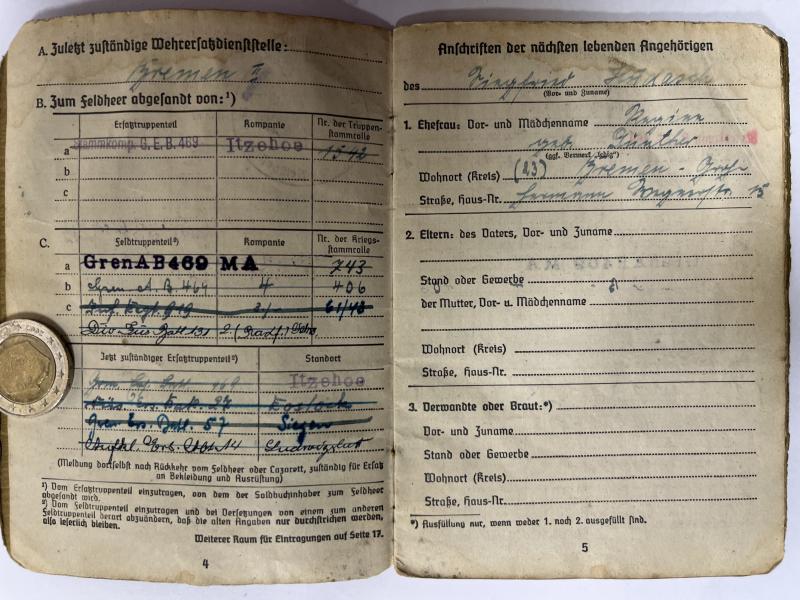 A. Zuletzt zuständige Wehrersatzdienststelle:
Bremen II
B. Zum Feldheer abgesandt von:¹)
Ersatztruppenteil Kompanie Nr. der Truppenstammrolle
a Stammkomp. G.E.B. 469 Itzehoe 1542
b
c
C. Feldtruppenteil²) Kompanie Nr. der Kriegsstammrolle
a GrenAB469 MA 743
b Gren. A. B. 469 4 406
c 61/43
Jetzt zuständiger Ersatztruppenteil²) Standort
Itzehoe
Gren. Ers. Batl. 57 Siegen
(Meldung dortselbst nach Rückkehr vom Feldheer oder Lazarett, zuständig für Ersatz
an Bekleidung und Ausrüstung)
¹) Vom Ersatztruppenteil einzutragen, von dem der Soldbuchinhaber zum Feldheer
abgesandt wird.
²) Vom Feldtruppenteil einzutragen und bei Versetzungen von einem zum anderen
Feldtruppenteil derart abzuändern, daß die alten Angaben nur durchstrichen werden,
also leserlich bleiben.
Weiterer Raum für Eintragungen auf Seite 17.
4
Anschriften der nächsten lebenden Angehörigen
des Siegfried
(Vor- und Zuname)
1. Ehefrau: Vor- und Mädchenname Regine
geb. Günther
(ggf. Vermerk „ledig“)
Wohnort (Kreis) (23) Bremen
Straße, Haus-Nr. Hermann 15
2. Eltern: des Vaters, Vor- und Zuname
Stand oder Gewerbe
der Mutter, Vor- u. Mädchenname
Wohnort (Kreis)
Straße, Haus-Nr.
3. Verwandte oder Braut:*)
Vor- und Zuname
Stand oder Gewerbe
Wohnort (Kreis)
Straße, Haus-Nr.
*) Ausfüllung nur, wenn weder 1. noch 2. ausgefüllt sind.
5